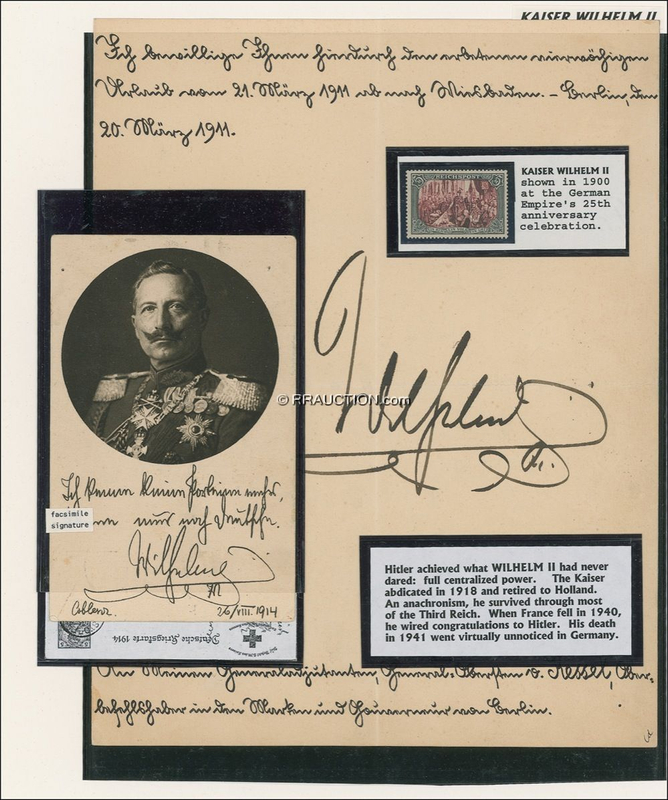 KAISER WILHELM II
Ich bewillige Ihnen hierdurch den erbetenen vierwöchigen
Urlaub vom 21. März 1911 ab nach Wiesbaden. – Berlin, den
20. März 1911.
REICHSPOST
KAISER WILHELM II
shown in 1900
at the German
Empire's 25th
anniversary
celebration.
© RRAUCTION.COM
Wilhelm
Ich kenne keine Parteien mehr,
nur noch Deutsche.
facsimile
signature
Wilhelm
Coblenz. 26/VIII. 1914
Deutsche Kriegskarte 1914
Hitler achieved what WILHELM II had never
dared: full centralized power. The Kaiser
abdicated in 1918 and retired to Holland.
An anachronism, he survived through most
of the Third Reich. When France fell in 1940,
he wired congratulations to Hitler. His death
in 1941 went virtually unnoticed in Germany.
An Meinen Generaladjutanten, General-Obersten v. Kessel, Ober-
befehlshaber in den Marken und Gouverneur von Berlin.